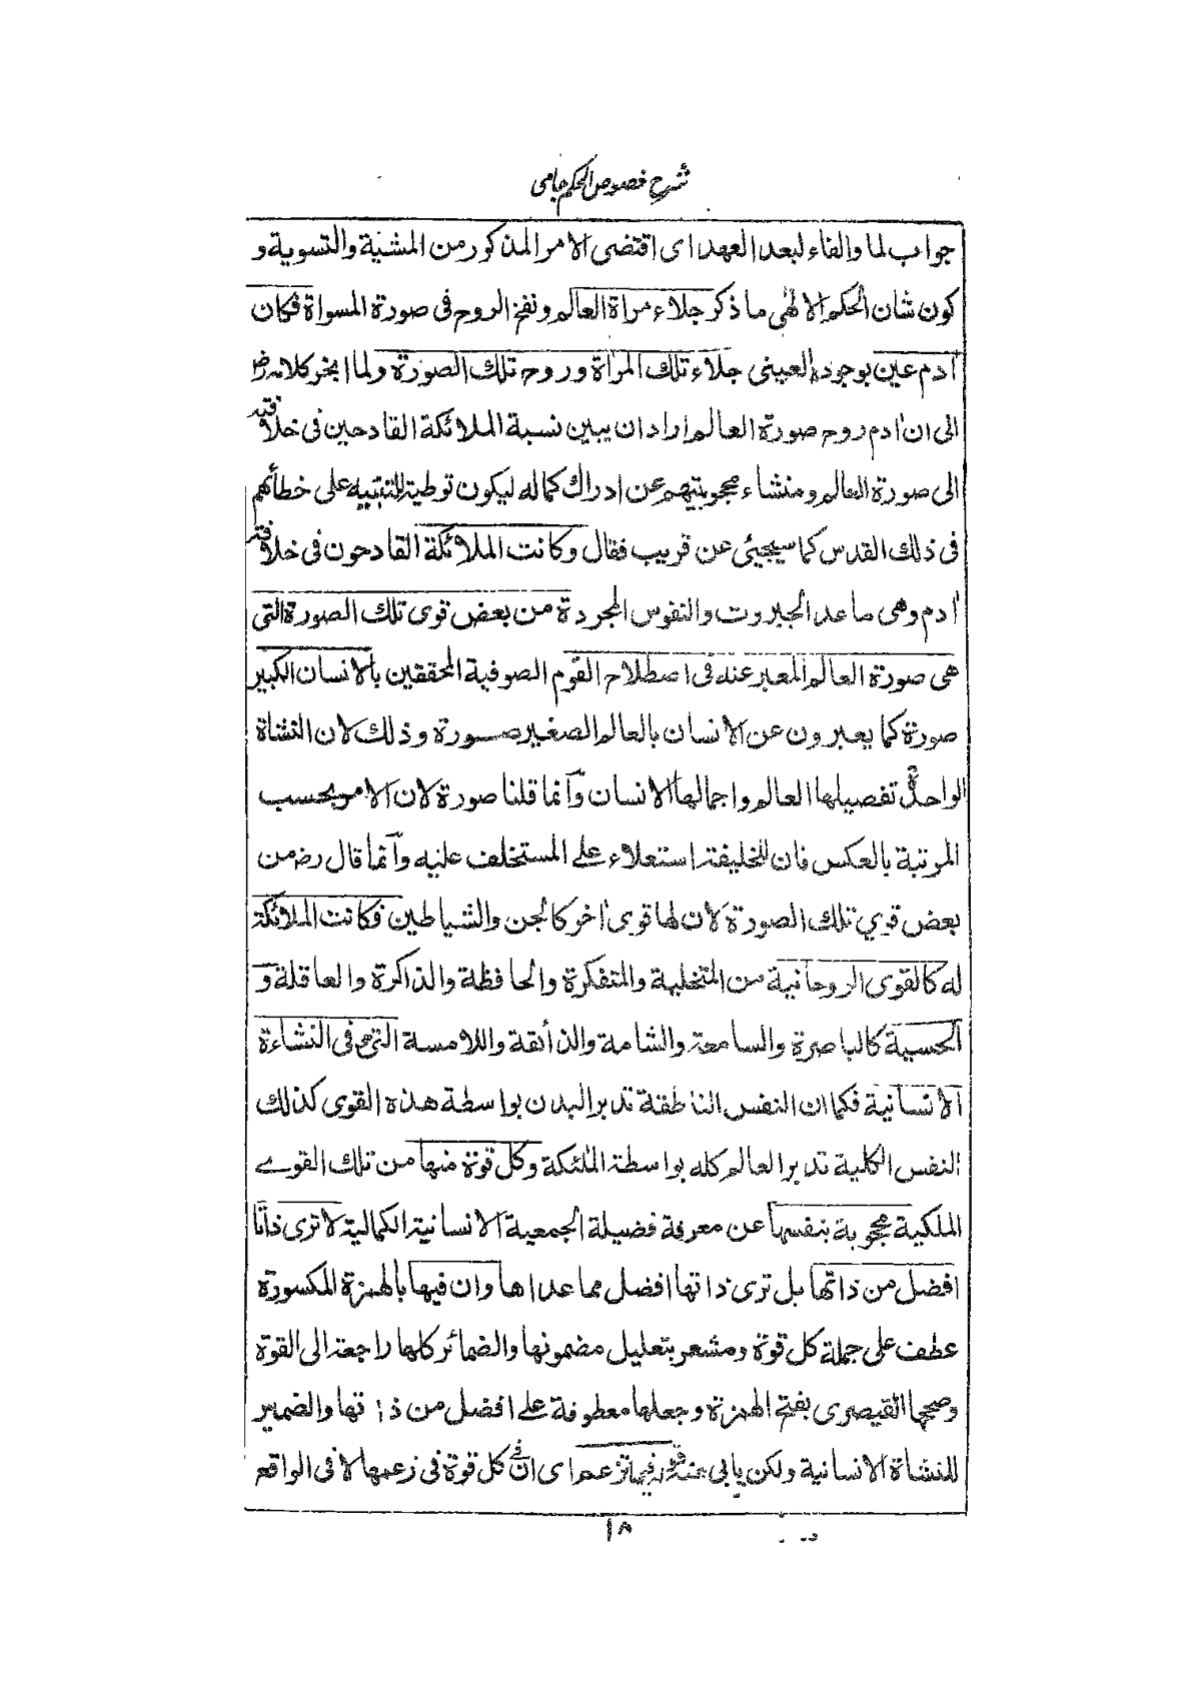 شرح فصوص الحکم جامی
جواب لما والفاء لبعد العهد ای اقتضی الامر المذکور من المشیة والتسویة و
کون شان الحکم الالٰهی ما ذکر جلاء مراة العالم ونفخ الروح فی صورة المسواة فکان
اٰدم عین بوجوده العینی جلاء تلك المراٰة وروح تلك الصورة ولما انجر کلامه رض
الی ان اٰدم روح صورة العالم اراد ان یبین نسبة الملائکة القادحین فی خلافته
الی صورة العالم ومنشاء محجوبیتهم عن ادراك کماله لیکون توطیة للتنبیه علی خطأهم
فی ذلك القدس کما سیجیئ عن قریب فقال وکانت الملائکة القادحون فی خلافته
اٰدم وهی ما عدا الجبروت والنفوس المجردة من بعض قوی تلك الصورة التی
هی صورة العالم المعبر عنه فی اصطلاح القوم الصوفیة المحققین بالانسان الکبیر
صورة کما یعبرون عن الانسان بالعالم الصغیر صورة وذلك لان النشاة
الواحدة تفصیلها العالم واجمالها الانسان وانما قلنا صورة لان الامر بحسب
المرتبة بالعکس فان للخلیفة استعلاء علی المستخلف علیه وانما قال رض من
بعض قوی تلك الصورة لان لها قوی اٰخر کالجن والشیاطین فکانت الملائکة
له کالقوی الروحانیة من المتخلیة والمتفکرة والحافظة والذاکرة والعاقلة و
الحسیة کالباصرة والسامعة والشامة والذائقة واللامسة التی هی فی النشاءة
الانسانیة فکما ان النفس الناطقة تدبر البدن بواسطة هذه القوی کذلك
النفس الکلیة تدبر العالم کله بواسطة الملئکة وکل قوة منها من تلك القوے
الملکیة محجوبة بنفسها عن معرفة فضیلة الجمعیة الانسانیة الکمالیة لا تری ذاتا
افضل من ذاتها بل تری ذاتها افضل مما عداها وان فیها بالهمزة المکسورة
عطف علی جملة کل قوة ومشعر بتعلیل مضمونها والضمائر کلها راجعة الی القوة
وصححها القیصری بفتح الهمزة وجعلها معطوفة علی افضل من ذاتها والضمیر
للنشاة الانسانیة ولکن یابی عنه قوله فیما تزعم ای ان فی کل قوة فی زعمها لا فی الواقع
١٨